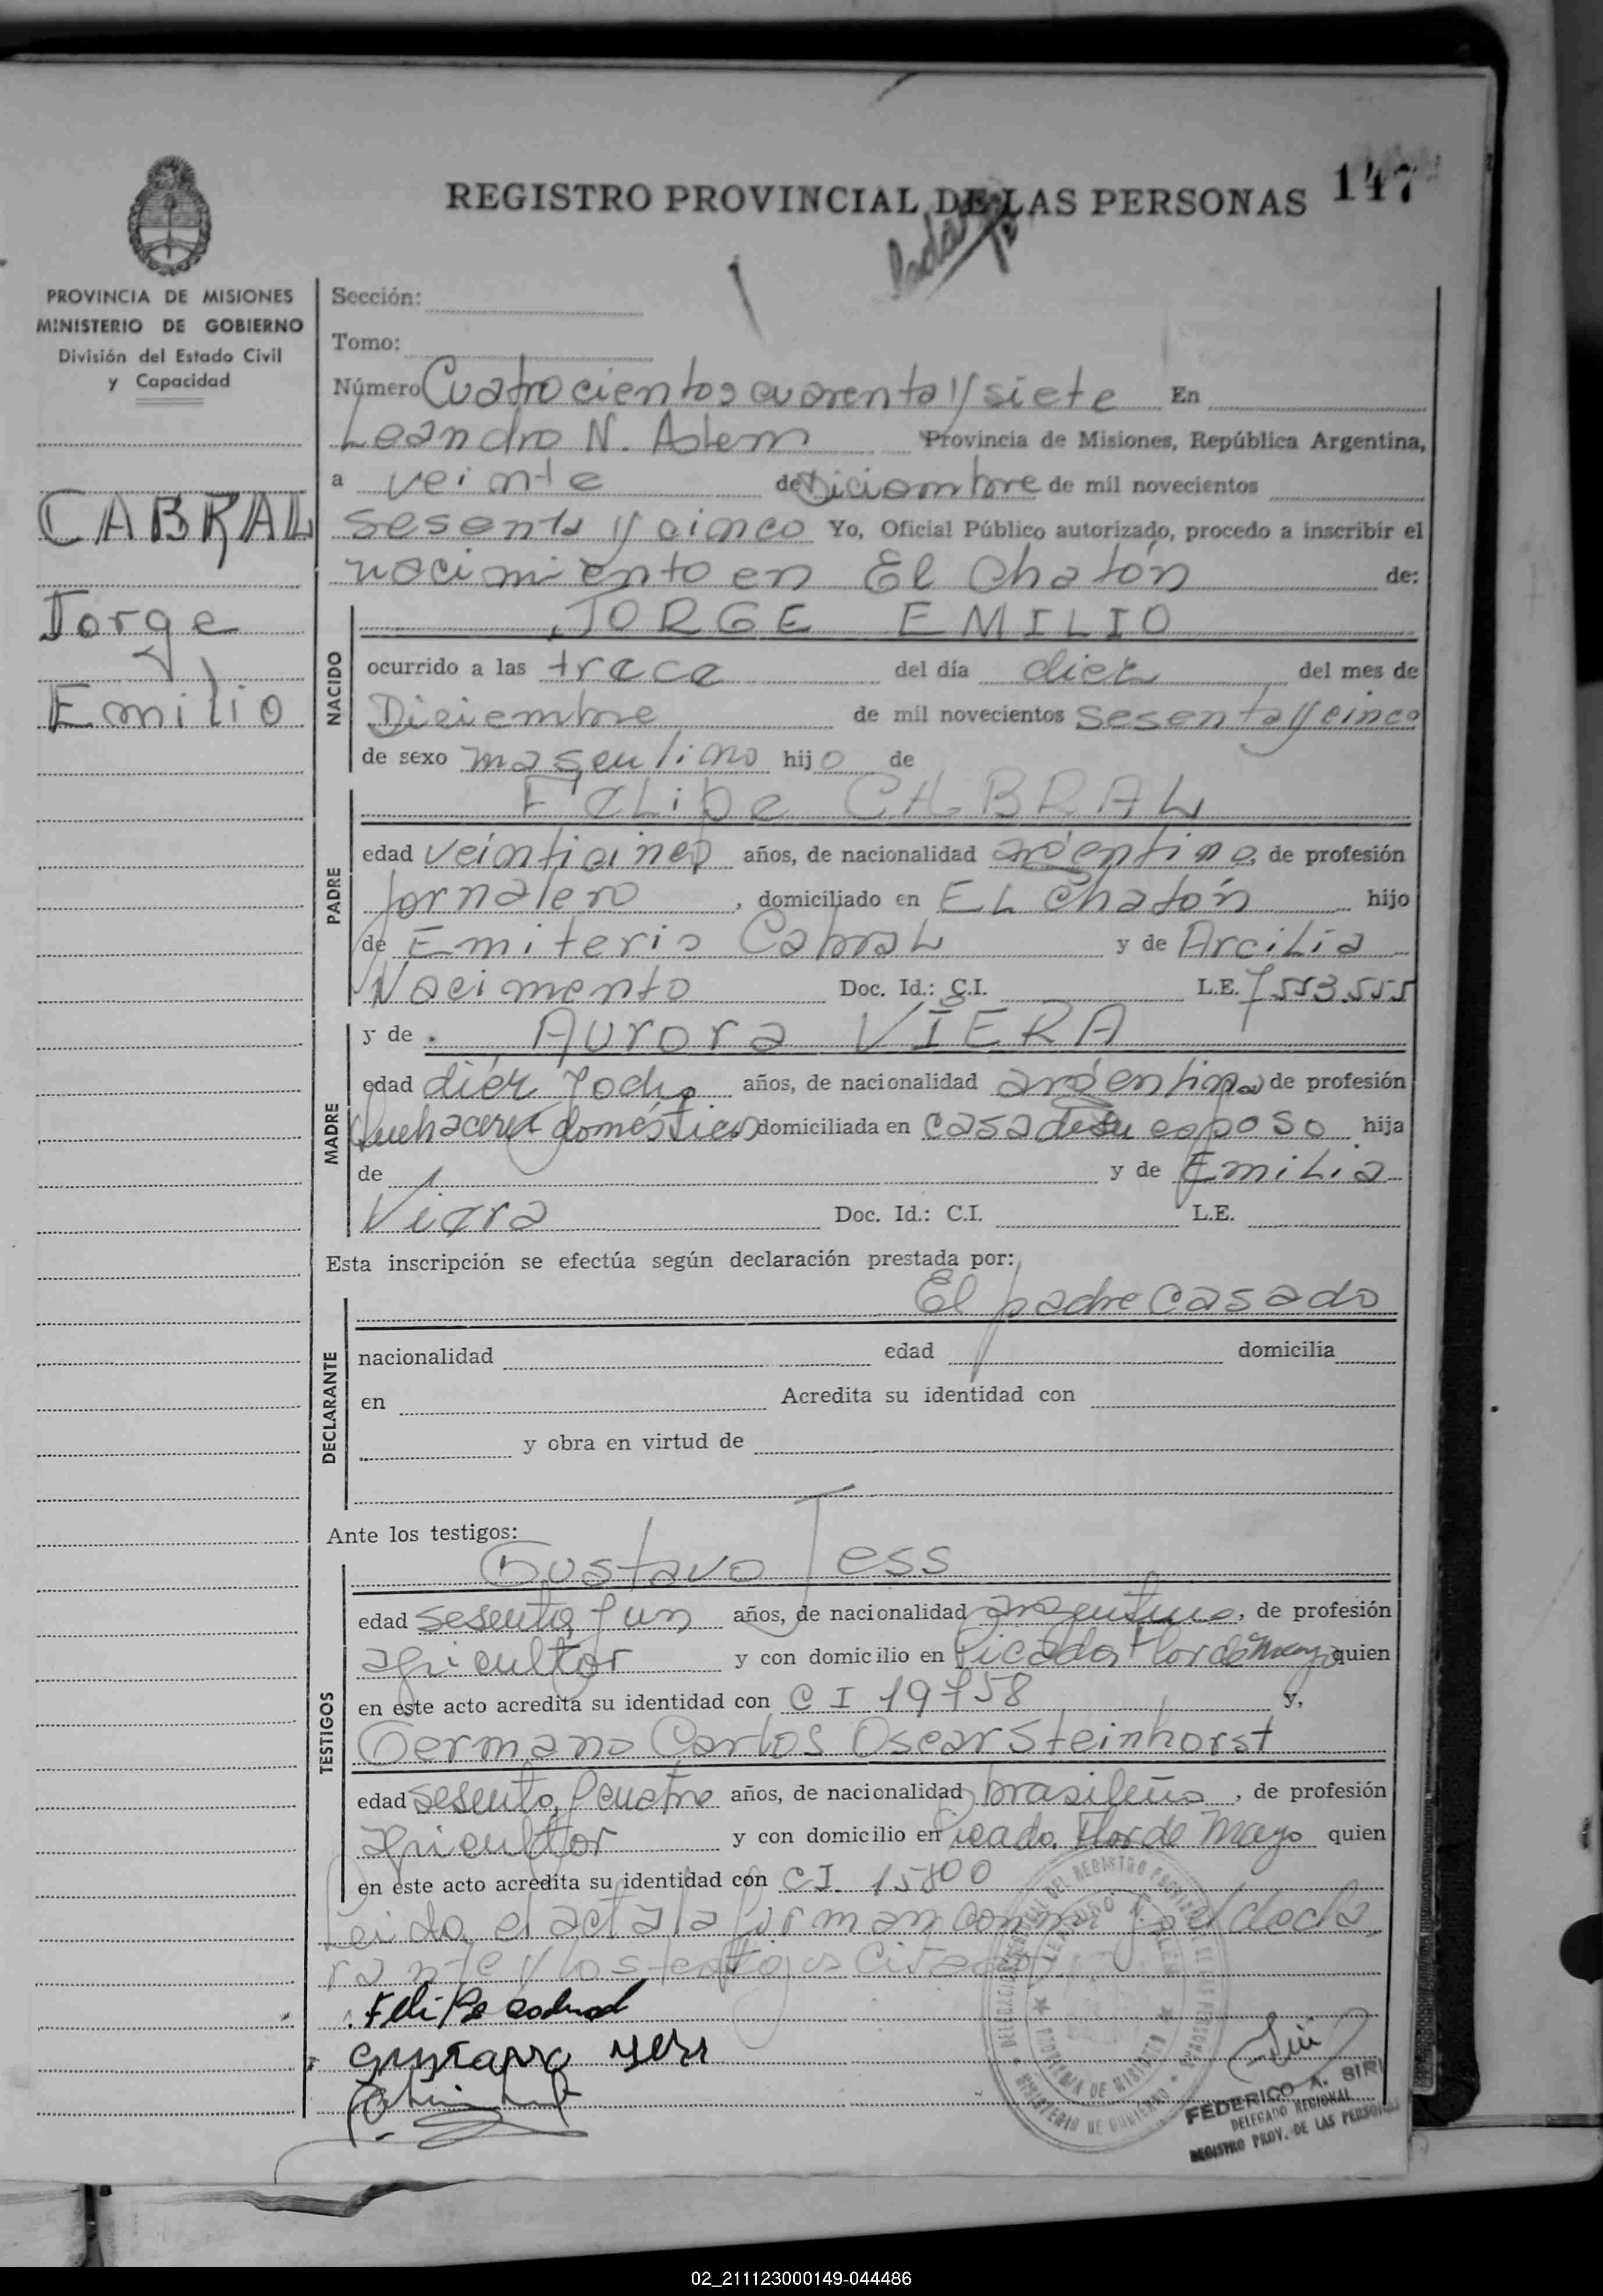 REGISTRO PROVINCIAL DE LAS PERSONAS 147
PROVINCIA DE MISIONES
MINISTERIO DE GOBIERNO
División del Estado Civil
y Capacidad
CABRAL
Jorge
Emilio
Sección:
Tomo:
Número Cuatrocientos cuarenta y siete En
Leandro N. Alem Provincia de Misiones, República Argentina,
a veinte de Diciembre de mil novecientos
sesenta y cinco Yo, Oficial Público autorizado, procedo a inscribir el
nacimiento en El Chatón de:
NACIDO
JORGE EMILIO
ocurrido a las trece del día diez del mes de
Diciembre de mil novecientos sesenta y cinco
de sexo masculino hijo de
PADRE
Felipe CABRAL
edad veinticinco años, de nacionalidad argentina, de profesión
Jornalero, domiciliado en EL Chatón hijo
de Emiterio Cabral y de Arcilia
Nacimento Doc. Id.: C.I. L.E. 7553.555
MADRE
y de Aurora VIERA
edad diez y ocho años, de nacionalidad argentina de profesión
Quehaceres domésticos domiciliada en casa de su esposo hija
de y de Emilia
Viera Doc. Id.: C.I. L.E.
Esta inscripción se efectúa según declaración prestada por:
DECLARANTE
El padre casado
nacionalidad edad domicilia
en Acredita su identidad con
y obra en virtud de
Ante los testigos:
TESTIGOS
Gustavo Jess
edad sesenta y un años, de nacionalidad argentino, de profesión
agricultor y con domicilio en Picada Flor de Mayo quien
en este acto acredita su identidad con C I 19758 y,
Germano Carlos Oscar Steinhorst
edad sesenta y cuatro años, de nacionalidad brasileño, de profesión
agricultor y con domicilio en Picada Flor de Mayo quien
en este acto acredita su identidad con C I. 15800
Leida el acta la firman conmigo el decla
rante y los testigos citados
Felipe cabral
Gustavo Jess
FEDERICO A. SIRI
DELEGADO REGIONAL
REGISTRO PROV. DE LAS PERSONAS
02_211123000149-044486